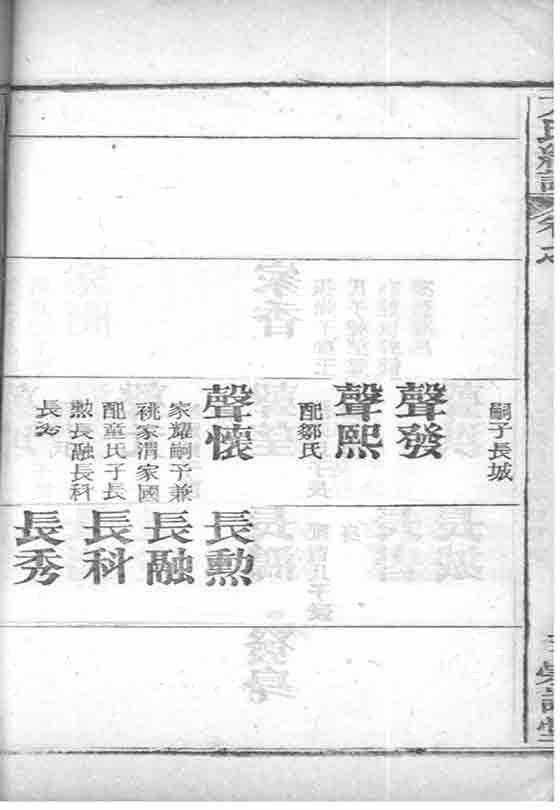 嗣子長城
聲發
聲熙
配鄒氏
聲懷
家耀嗣子兼
祧家渭家國
配童氏子長
勲長融長科
長秀
長勲
長融
長科
長秀